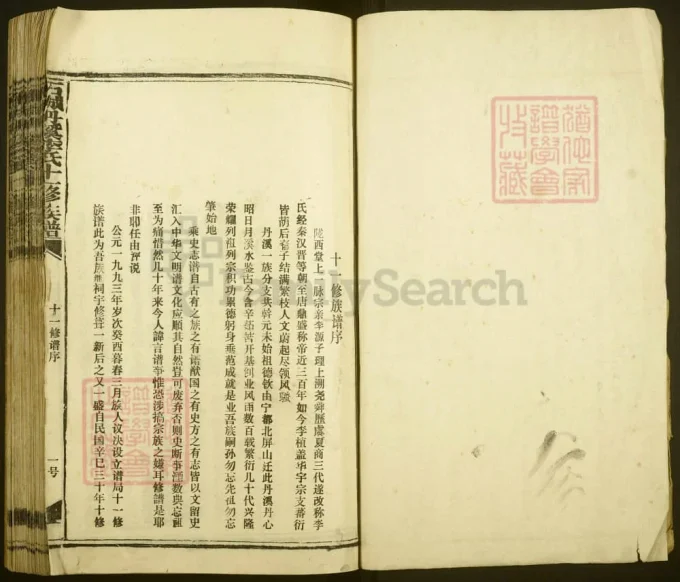 十一修族谱序
陇西堂上一脉宗亲李源子理上溯尧舜歷虞夏商三代遂改称李
氏经秦汉晋等朝至唐鼎盛称帝近三百年如今李植盖华宇宗支蕃衍
皆荫后裔子结满繁枝人文蔚起尽领风骚
丹溪一族分支共幹元末始祖德钦由宁都北屏山迁此丹溪丹心
昭日月溪水鉴古今含辛茹苦开基创业风雨数百载繁衍几十代兴隆
荣耀列祖列宗积功累德躬身垂范成就是业吾族嗣孙勿忘先祖勿忘
肇始地
乘史志谱自古有之族之有谱猷国之有史方之有志皆以文留史
汇入中华文明谱文化应顺其自然岂可废弃否则史断事湮数典忘祖
至为痛惜然几十年来今人諱言谱事惟恐涉搞宗族之嫌耳修谱是耶
非耶任由评说
公元一九九三年岁次癸酉暮春三月族人议决设立谱局十一修
族谱此为吾族惟祠宇修葺一新后之又一盛自民国辛巳三十年十修
氏十一修族谱
十一修谱序
一号
谱学会
收藏
FamilySearch